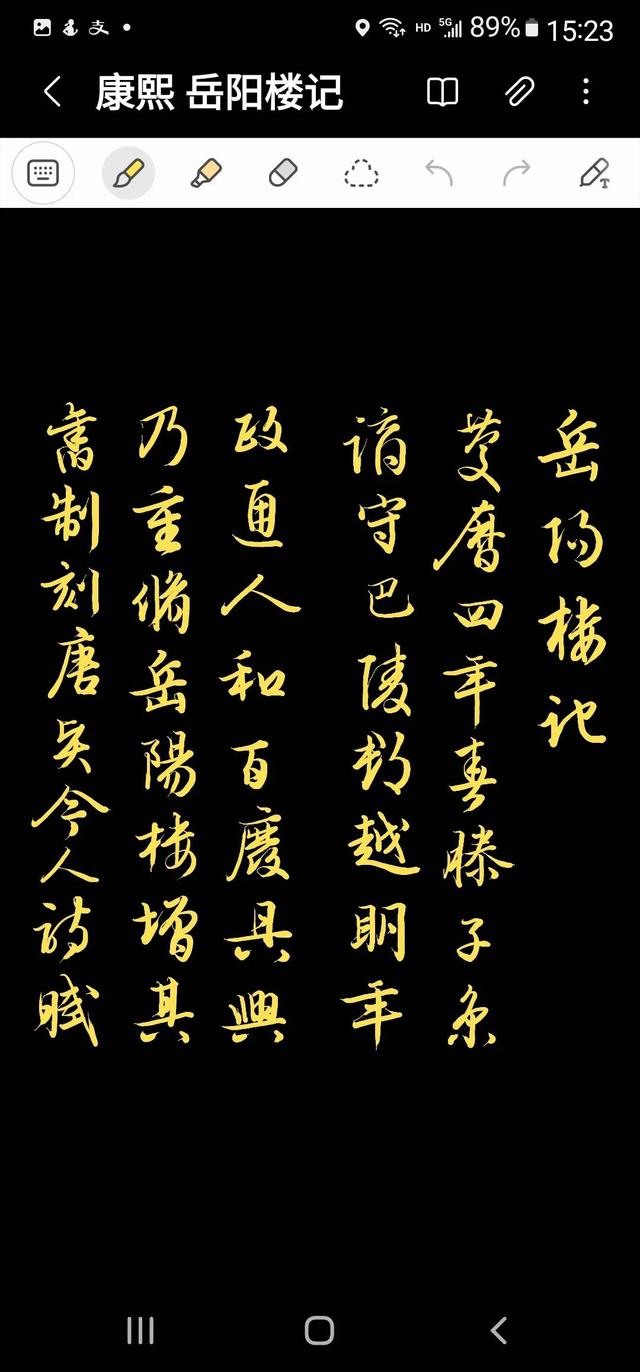 HD 5G 89% 15:23
康熙 岳阳楼记
岳陽楼記
慶曆四年春滕子京
謫守巴陵郡越明年
政通人和百廢具興
乃重脩岳陽楼增其
舊制刻唐賢今人詩賦
T